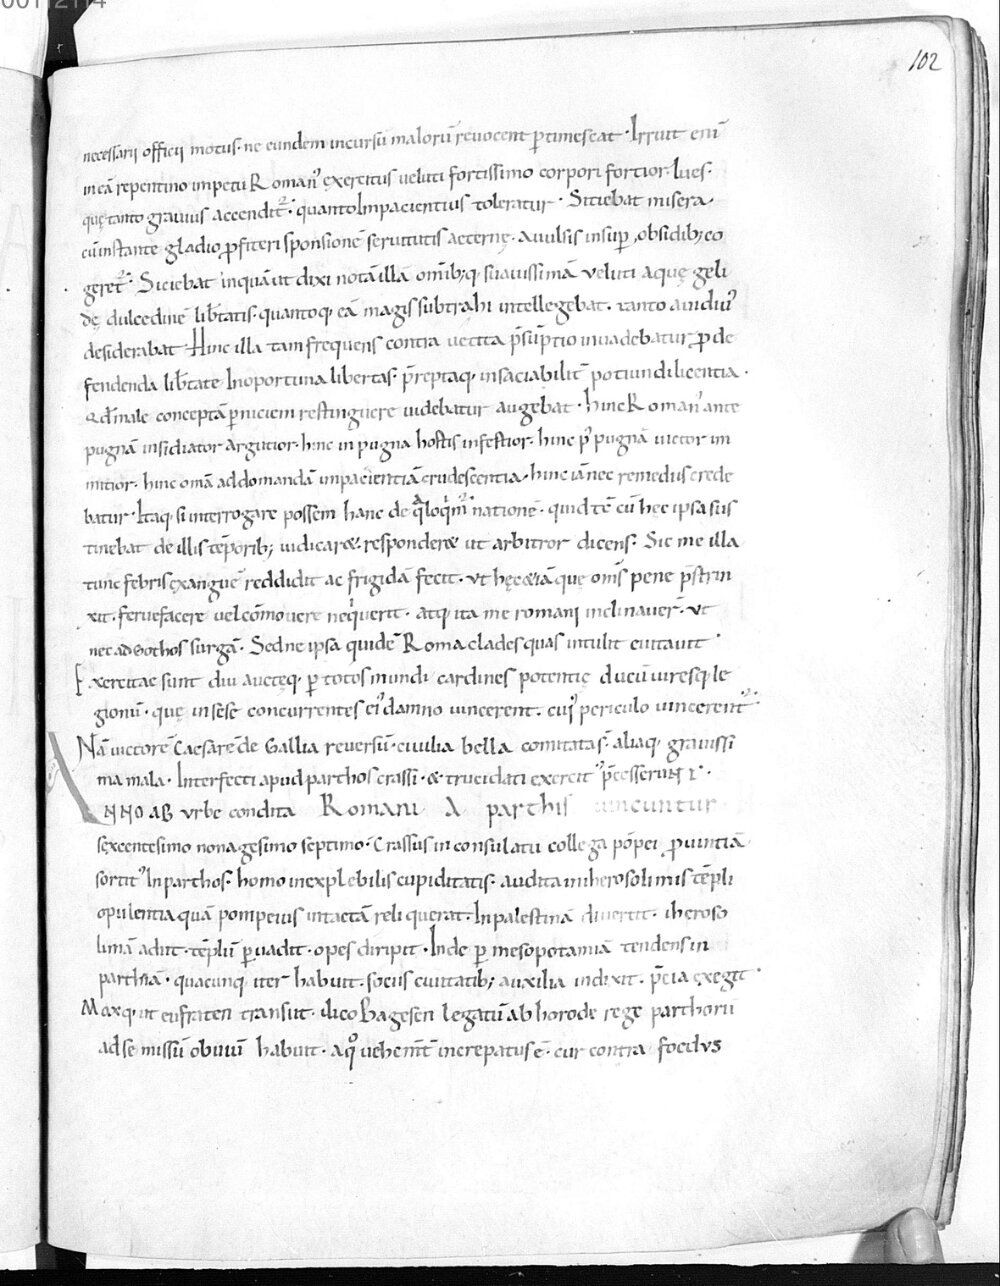 00112114
102
necessarii officii motus · ne eundem incursū malorū revocent ꝑtimescat · Irruit eni̅
in eā repentino impetu Roman᾽ exercitus veluti fortissimo corpori fortior lues ·
quę tanto gravius accendit᷑ · quanto Impacientius toleratur · Siciebat misera ·
cū instante gladio ꝓfiteri sponsionē servitutis aeternę · Avulsis insup̄ obsidib; co
geret᷑ · Siciebat inquā ut dixi notā illā omib;q· suavissimā veluti aquę geli
dę dulcedinē lib̄tatis · quantoq· eā magis subtrahi intellegebat · tanto avidius
desiderabat · Hinc illa tam frequens contra vetita p̄sūptio invadebatur ꝓ de
fendenda lib̄tate Inoportuna libertas · p̄reptaq· insaciabilit̄ potiundi licentia ·
qd̄ male conceptā ꝑniciem restinguere videbatur augebat · hinc Roman᾽ ante
pugnā insidiator argutior · hinc in pugna hostis infestior · hinc p᾽ pugnā victor im
mitior · hinc omā ad domandā impacientiā crudescentia · hinc iā nec remediis crede
batur · Itaq· si interrogare possem hanc de qua loqim᷑ nationē · quid tē cū hęc ipsa sus
tinebat de illis tēporib; iudicar& · responder& ut arbitror dicens · Sic me illa
tunc febris exanguē reddidit ac frigidā fecit · ut hęc &iā quę om̄s pene p̄strin
xit · fervefacere vel cōmovere neqiverit · atq· ita me romani inclinaver̄ · ut
nec ad Gothos surgā · Sed ne ipsa quidē Roma clades quas intulit evitavit ·
Exercitae sunt diu auctęq· ꝑ totos mundi cardines potentię ducū viresq· le
gionū · quę in sese concurrentes ei᾽ damno vincerent · cui᾽ periculo vincerent᷑ ·
Nā victorē Caesarē de Gallia reversū · civilia bella comitata s̄ · aliaq· gravissi
ma mala · Interfecti apud parthos crassi · & trucidati exercit᾽ p̄cesserunt ·
ANNO AB urbe condita Romani A parthis vincuntur
sexcentesimo nonagesimo septimo · Crassus in consulatu collega pōpei ꝓvintiā
sortit᾽ In parthos · homo inexplebilis cupiditatis · audita in hierosolimis tēpli
opulentia quā pompeius intactā reliquerat · In palestinā divertit · iheroso
limā adiit · tēplū ꝑvadit · opes diripit · Inde ꝑ mesopotamiā tendens in
parthiā · quacunq· iter habuit · sociis civitatib; auxilia indixit · p̄cia exegit ·
Moxq· ut eufraten transiit · ilico Bagesen legatū ab horode rege parthorū
ad se missū obviū habuit · a qo vehem̄t increpatus ē · cur contra foedus